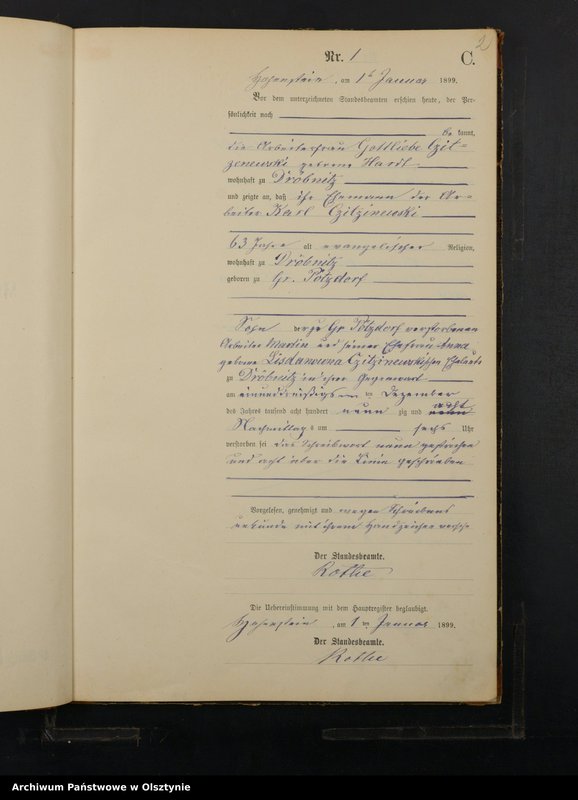 2
Nr. 1
C.
Hohenstein, am 1ten Januar 1899.
Vor dem unterzeichneten Standesbeamten erschien heute, der Per-
sönlichkeit nach
be kannt,
die Arbeiterfrau Gottliebe Czit-
zinewski geborne Hardt
wohnhaft zu Dröbnitz
und zeigte an, daß ihr Ehemann der Ar-
beiter Karl Czitzinewski
63 Jahre alt evangelischer Religion,
wohnhaft zu Dröbnitz
geboren zu Gr. Pötzdorf
Sohn der zu Gr Pötzdorf verstorbenen
Arbeiter Martin und seiner Ehefrau Anna
geborne Lisdanowna Czitzinewskischen Eheleute
zu Dröbnitz in ihrer Gegenwart
am einunddreißigsten Dezember
acht
des Jahres tausend acht hundert neun zig und neun
Nachmittags um sechs Uhr
verstorben sei das Schreibwort neun gestrichen
und acht über die Linie geschrieben
Vorgelesen, genehmigt und wegen Schreibens
unkunde mit ihrem Handzeichen versehen
Der Standesbeamte.
Rothe
Die Uebereinstimmung mit dem Hauptregister beglaubigt.
Hohenstein, am 1ten Januar 1899.
Der Standesbeamte.
Rothe
Archiwum Państwowe w Olsztynie